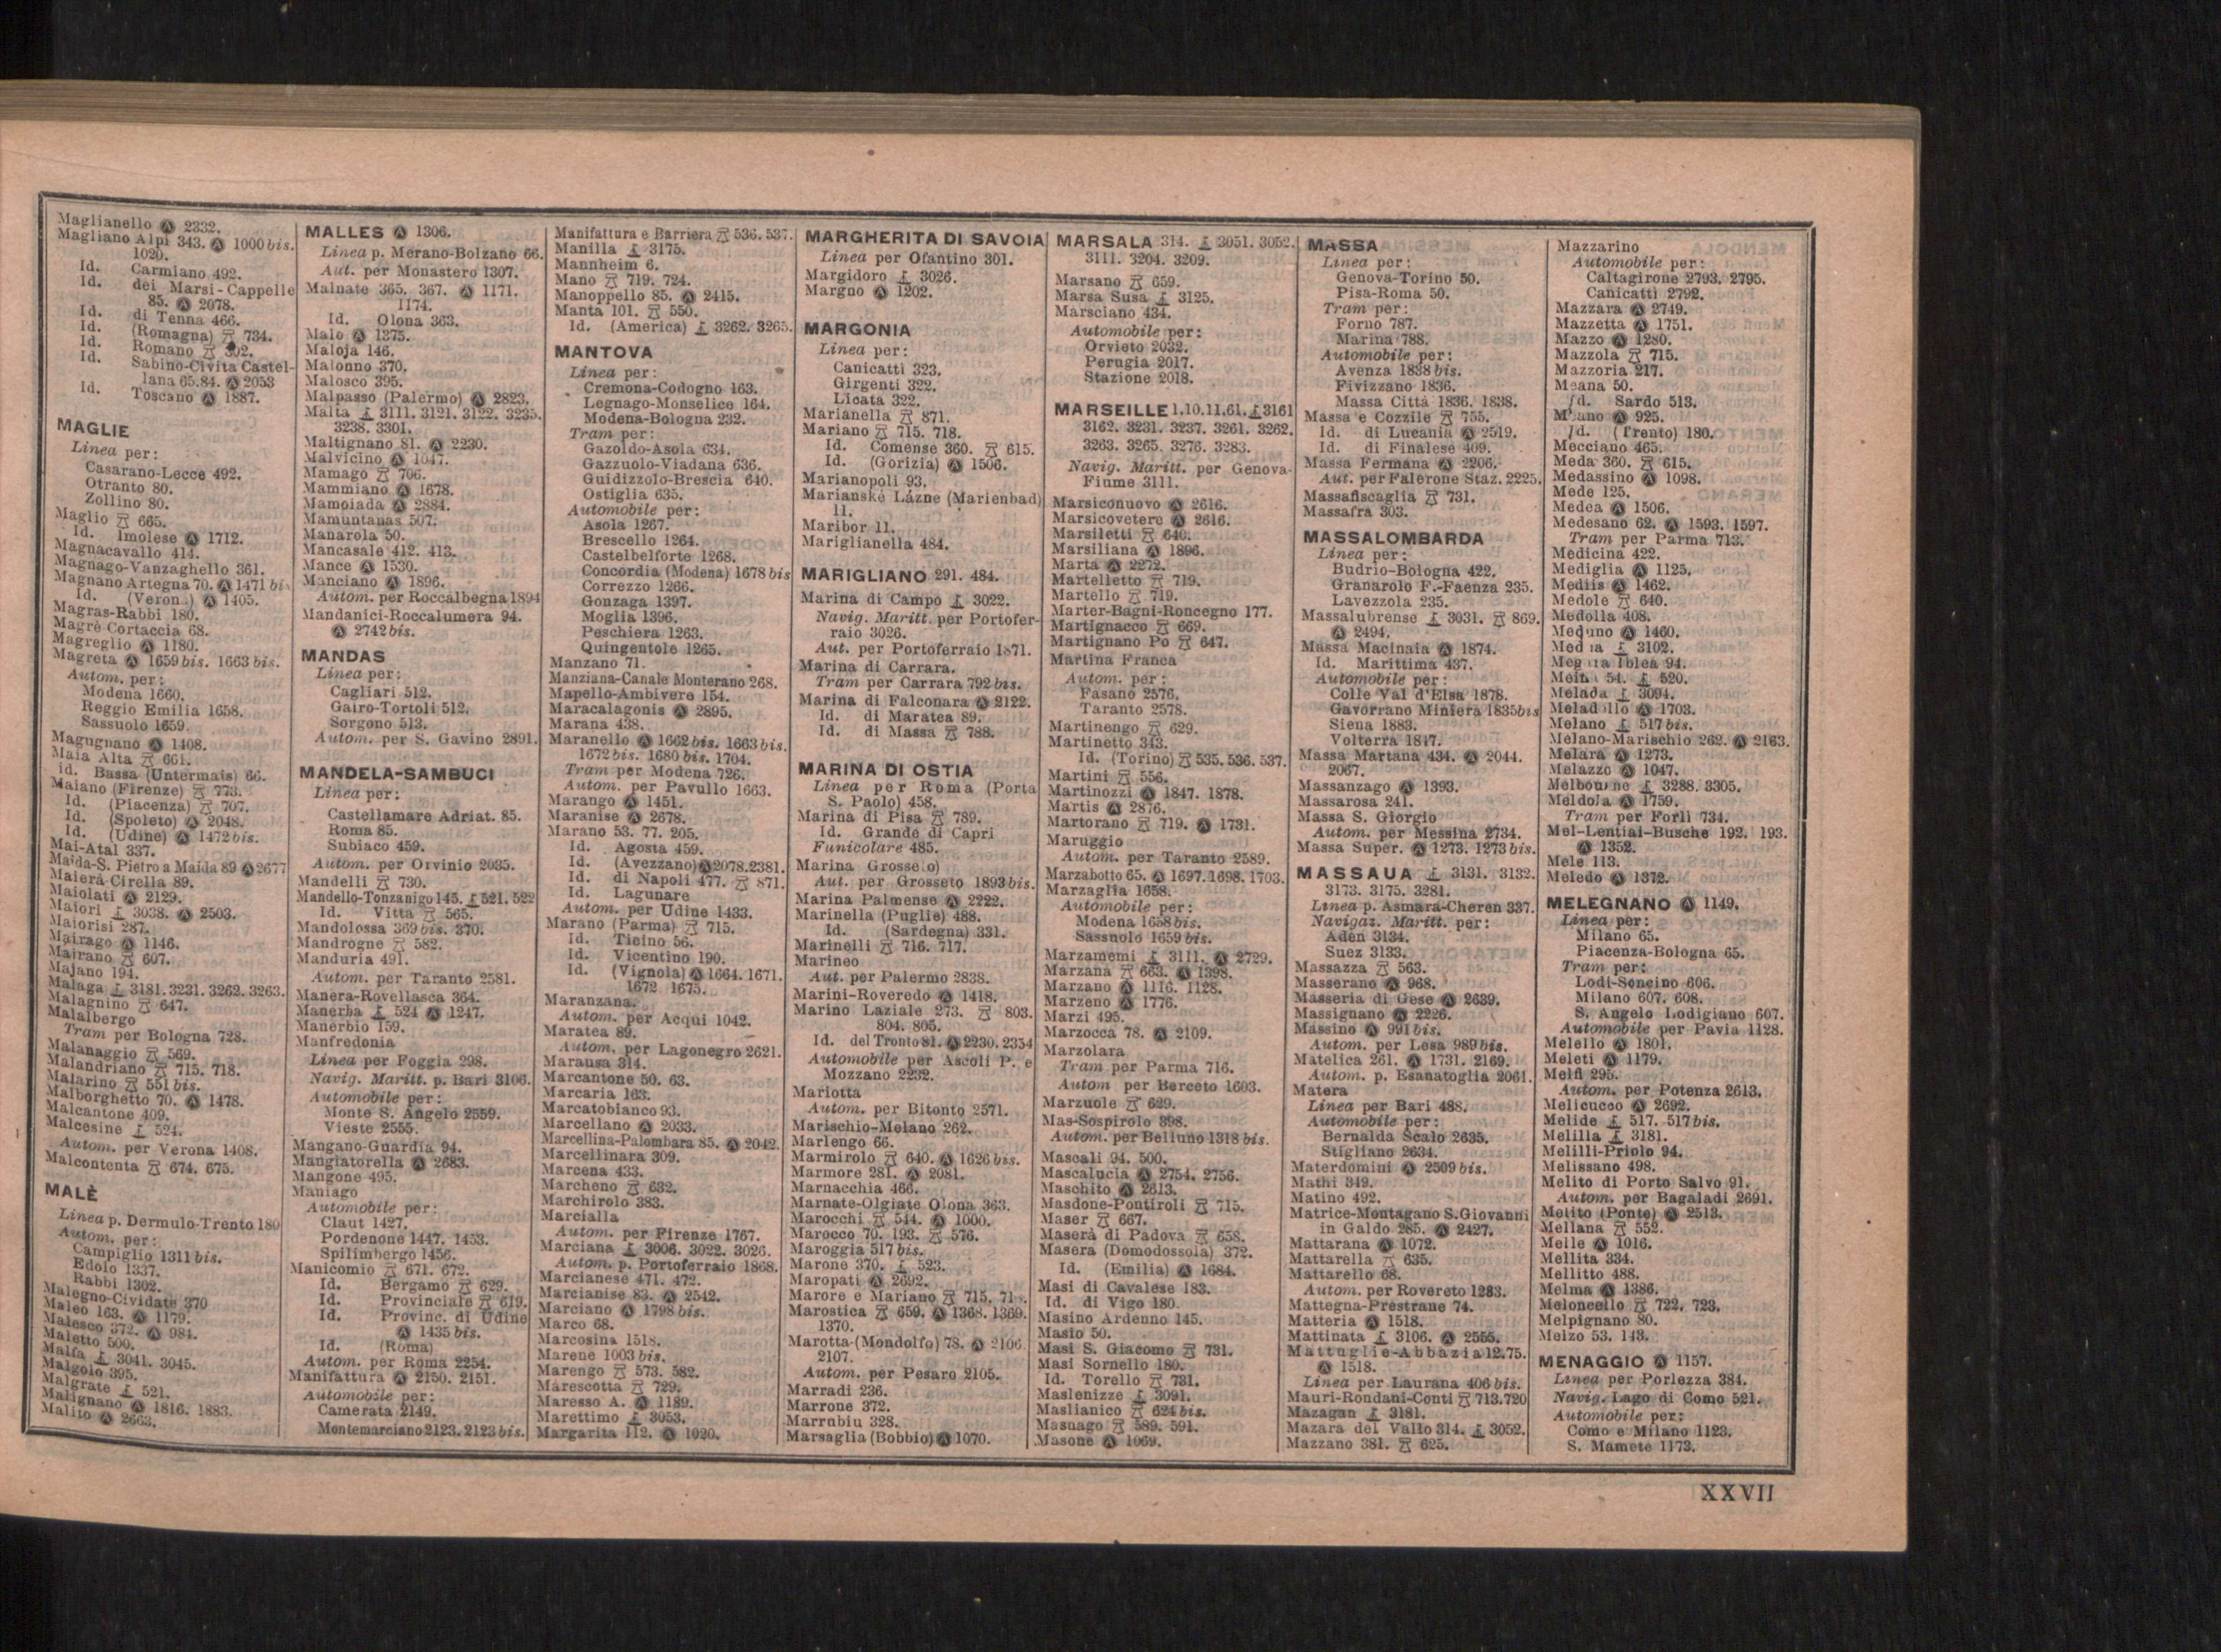 Maglianello Ⓐ 2332.
Magliano Alpi 343. Ⓐ 1000 bis.
1020.
Id. Carmiano 492.
Id. dei Marsi-Cappelle
85. Ⓐ 2078.
Id. di Tenna 466.
Id. (Romagna) 734.
Id. Romano 302.
Id. Sabino-Civita Castel-
lana 65.84. Ⓐ 2053
Id. Toscano Ⓐ 1887.
MAGLIE
Linea per:
Casarano-Lecce 492.
Otranto 80.
Zollino 80.
Maglio 665.
Id. Imolese Ⓐ 1712.
Magnacavallo 414.
Magnago-Vanzaghello 361.
Magnano Artegna 70. Ⓐ 1471 bis
Id. (Veron.) Ⓐ 1405.
Magras-Rabbi 180.
Magrè Cortaccia 68.
Magreglio Ⓐ 1180.
Magreta Ⓐ 1659 bis. 1663 bis.
Autom. per:
Modena 1660.
Reggio Emilia 1658.
Sassuolo 1659.
Magugnano Ⓐ 1408.
Maia Alta 661.
id. Bassa (Untermais) 66.
Maiano (Firenze) 773.
Id. (Piacenza) 707.
Id. (Spoleto) Ⓐ 2048.
Id. (Udine) Ⓐ 1472 bis.
Mai-Atal 337.
Maida-S. Pietro a Maida 89 Ⓐ 2677
Maierà-Cirella 89.
Maiolati Ⓐ 2129.
Maiori 3038. Ⓐ 2503.
Maiorisi 287.
Mairago Ⓐ 1146.
Mairano 607.
Majano 194.
Malaga 3181. 3231. 3262. 3263.
Malagnino 647.
Malalbergo
Tram per Bologna 728.
Malanaggio 569.
Malandriano 715. 718.
Malarino 551 bis.
Malborghetto 70. Ⓐ 1478.
Malcantone 409.
Malcesine 524.
Autom. per Verona 1408.
Malcontenta 674. 675.
MALÈ
Linea p. Dermulo-Trento 180
Autom. per:
Campiglio 1311 bis.
Edolo 1337.
Rabbi 1302.
Malegno-Cividate 370
Maleo 163. Ⓐ 1179.
Malesco 372. Ⓐ 984.
Maletto 500.
Malfa 3041. 3045.
Malgolo 395.
Malgrate 521.
Malignano Ⓐ 1816. 1883.
Malito Ⓐ 2663.
MALLES Ⓐ 1306.
Linea p. Merano-Bolzano 66.
Aut. per Monastero 1307.
Malnate 365. 367. Ⓐ 1171.
1174.
Id. Olona 363.
Malo Ⓐ 1375.
Maloja 146.
Malonno 370.
Malosco 395.
Malpasso (Palermo) Ⓐ 2823.
Malta 3111. 3121. 3122. 3235.
3238. 3301.
Maltignano 81. Ⓐ 2230.
Malvicino Ⓐ 1047.
Mamago 706.
Mammiano Ⓐ 1678.
Mamoiada Ⓐ 2884.
Mamuntanas 507.
Manarola 50.
Mancasale 412. 413.
Mance Ⓐ 1530.
Manciano Ⓐ 1896.
Autom. per Roccalbegna 1894
Mandanici-Roccalumera 94.
Ⓐ 2742 bis.
MANDAS
Linea per:
Cagliari 512.
Gairo-Tortoli 512.
Sorgono 513.
Autom. per S. Gavino 2891.
MANDELA-SAMBUCI
Linea per:
Castellamare Adriat. 85.
Roma 85.
Subiaco 459.
Autom. per Orvinio 2035.
Mandelli 730.
Mandello-Tonzanigo 145. 521. 522
Id. Vitta 565.
Mandolossa 369 bis. 370.
Mandrogne 582.
Manduria 491.
Autom. per Taranto 2581.
Manera-Rovellasca 364.
Manerba 524 Ⓐ 1247.
Manerbio 159.
Manfredonia
Linea per Foggia 298.
Navig. Maritt. p. Bari 3106.
Automobile per:
Monte S. Angelo 2559.
Vieste 2555.
Mangano-Guardia 94.
Mangiatorella Ⓐ 2683.
Mangone 495.
Maniago
Automobile per:
Claut 1427.
Pordenone 1447. 1453.
Spilimbergo 1456.
Manicomio 671. 672.
Id. Bergamo 629.
Id. Provinciale 619.
Id. Provinc. di Udine
Ⓐ 1435 bis.
Id. (Roma)
Autom. per Roma 2254.
Manifattura Ⓐ 2150. 2151.
Automobile per:
Camerata 2149.
Montemarciano 2123. 2123 bis.
Manifattura e Barriera 536. 537.
Manilla 3175.
Mannheim 6.
Mano 719. 724.
Manoppello 85. Ⓐ 2415.
Manta 101. 550.
Id. (America) 3262. 3265.
MANTOVA
Linea per:
Cremona-Codogno 163.
Legnago-Monselice 164.
Modena-Bologna 232.
Tram per:
Gazoldo-Asola 634.
Gazzuolo-Viadana 636.
Guidizzolo-Brescia 640.
Ostiglia 635.
Automobile per:
Asola 1267.
Brescello 1264.
Castelbelforte 1268.
Concordia (Modena) 1678 bis
Correzzo 1266.
Gonzaga 1397.
Moglia 1396.
Peschiera 1263.
Quingentole 1265.
Manzano 71.
Manziana-Canale Monterano 268.
Mapello-Ambivere 154.
Maracalagonis Ⓐ 2895.
Marana 438.
Maranello Ⓐ 1662 bis. 1663 bis.
1672 bis. 1680 bis. 1704.
Tram per Modena 726.
Autom. per Pavullo 1663.
Marango Ⓐ 1451.
Maranise Ⓐ 2678.
Marano 53. 77. 205.
Id. Agosta 459.
Id. (Avezzano) Ⓐ 2078. 2381.
Id. di Napoli 477. 871.
Id. Lagunare
Autom. per Udine 1433.
Marano (Parma) 715.
Id. Ticino 56.
Id. Vicentino 190.
Id. (Vignola) Ⓐ 1664. 1671.
1672 1675.
Maranzana.
Autom. per Acqui 1042.
Maratea 89.
Autom. per Lagonegro 2621.
Marausa 314.
Marcantone 50. 63.
Marcaria 163.
Marcatobianco 93.
Marcellano Ⓐ 2033.
Marcellina-Palombara 85. Ⓐ 2042.
Marcellinara 309.
Marcena 433.
Marcheno 632.
Marchirolo 383.
Marcialla
Autom. per Firenze 1767.
Marciana 3006. 3022. 3026.
Autom. p. Portoferraio 1868.
Marcianese 471. 472.
Marcianise 83. Ⓐ 2542.
Marciano Ⓐ 1798 bis.
Marco 68.
Marcosina 1518.
Marene 1003 bis.
Marengo 573. 582.
Marescotta 729.
Maresso A. Ⓐ 1189.
Marettimo 3053.
Margarita 112. Ⓐ 1020.
MARGHERITA DI SAVOIA
Linea per Ofantino 301.
Margidoro 3026.
Margno Ⓐ 1202.
MARGONIA
Linea per:
Canicattì 323.
Girgenti 322.
Licata 322.
Marianella 871.
Mariano 715. 718.
Id. Comense 360. 615.
Id. (Gorizia) Ⓐ 1506.
Marianopoli 93.
Marianské Lázne (Marienbad)
11.
Maribor 11.
Mariglianella 484.
MARIGLIANO 291. 484.
Marina di Campo 3022.
Navig. Maritt. per Portofer-
raio 3026.
Aut. per Portoferraio 1871.
Marina di Carrara.
Tram per Carrara 792 bis.
Marina di Falconara Ⓐ 2122.
Id. di Maratea 89.
Id. di Massa 788.
MARINA DI OSTIA
Linea per Roma (Porta
S. Paolo) 458.
Marina di Pisa 789.
Id. Grande di Capri
Funicolare 485.
Marina Grosseto)
Aut. per Grosseto 1893 bis.
Marina Palmense Ⓐ 2222.
Marinella (Puglie) 488.
Id. (Sardegna) 331.
Marinelli 716. 717.
Marineo
Aut. per Palermo 2838.
Marini-Roveredo Ⓐ 1418.
Marino Laziale 273. 803.
804. 805.
Id. del Tronto 81. Ⓐ 2230. 2354
Automobile per Ascoli P. e
Mozzano 2232.
Mariotta
Autom. per Bitonto 2571.
Marischio-Melano 262.
Marlengo 66.
Marmirolo 640. Ⓐ 1626 bis.
Marmore 281. Ⓐ 2081.
Marnacchia 466.
Marnate-Olgiate Olona 363.
Marocchi 544. Ⓐ 1000.
Marocco 70. 193. 576.
Maroggia 517 bis.
Marone 370. 523.
Maropati Ⓐ 2692.
Marore e Mariano 715.
Marostica 659. Ⓐ 1368. 1369.
1370.
Marotta-(Mondolfo) 78. Ⓐ 2106
2107.
Autom. per Pesaro 2105.
Marradi 236.
Marrone 372.
Marrubiu 328.
Marsaglia (Bobbio) Ⓐ 1070.
MARSALA 314. 3051. 3052.
3111. 3204. 3209.
Marsano 659.
Marsa Susa 3125.
Marsciano 434.
Automobile per:
Orvieto 2032.
Perugia 2017.
Stazione 2018.
MARSEILLE 1.10.11.61. 3161
3162. 3231. 3237. 3261. 3262.
3263. 3265. 3276. 3283.
Navig. Maritt. per Genova-
Fiume 3111.
Marsiconuovo Ⓐ 2616.
Marsicovetere Ⓐ 2616.
Marsiletti 640.
Marsiliana Ⓐ 1896.
Marta Ⓐ 2272.
Martelletto 719.
Martello 719.
Marter-Bagni-Roncegno 177.
Martignacco 669.
Martignano Po 647.
Martina Franca
Autom. per:
Fasano 2576.
Taranto 2578.
Martinengo 629.
Martinetto 343.
Id. (Torino) 535. 536. 537.
Martini 556.
Martinozzi Ⓐ 1847. 1878.
Martis Ⓐ 2876.
Martorano 719. Ⓐ 1731.
Maruggio
Autom. per Taranto 2589.
Marzabotto 65. Ⓐ 1697. 1698. 1703.
Marzaglia 1658.
Automobile per:
Modena 1658 bis.
Sassuolo 1659 bis.
Marzamemi 3111. Ⓐ 2729.
Marzana 663. Ⓐ 1398.
Marzano Ⓐ 1116. 1128.
Marzeno Ⓐ 1776.
Marzi 495.
Marzocca 78. Ⓐ 2109.
Marzolara
Tram per Parma 716.
Autom per Berceto 1603.
Marzuole 629.
Mas-Sospirolo 398.
Autom. per Belluno 1318 bis.
Mascali 94. 500.
Mascalucia Ⓐ 2754. 2756.
Maschito Ⓐ 2613.
Masdone-Pontiroli 715.
Maser 667.
Maserà di Padova 658.
Masera (Domodossola) 372.
Id. (Emilia) Ⓐ 1684.
Masi di Cavalese 183.
Id. di Vigo 180.
Masino Ardenno 145.
Masio 50.
Masi S. Giacomo 731.
Masi Sornello 180.
Id. Torello 731.
Maslenizze 3091.
Maslianico 624 bis.
Masnago 589. 591.
Masone Ⓐ 1069.
MASSA
Linea per:
Genova-Torino 50.
Pisa-Roma 50.
Tram per:
Forno 787.
Marina 788.
Automobile per:
Avenza 1838 bis.
Fivizzano 1836.
Massa Città 1836. 1838.
Massa e Cozzile 755.
Id. di Lucania Ⓐ 2519.
Id. di Finalese 409.
Massa Fermana Ⓐ 2206.
Aut. per Falerone Staz. 2225.
Massafiscaglia 731.
Massafra 303.
MASSALOMBARDA
Linea per:
Budrio-Bologna 422.
Granarolo F.-Faenza 235.
Lavezzola 235.
Massalubrense 3031. 869.
Ⓐ 2494.
Massa Macinaia Ⓐ 1874.
Id. Marittima 437.
Automobile per:
Colle Val d'Elsa 1878.
Gavorrano Miniera 1835 bis
Siena 1883.
Volterra 1847.
Massa Martana 434. Ⓐ 2044.
2067.
Massanzago Ⓐ 1393.
Massarosa 241.
Massa S. Giorgio
Autom. per Messina 2734.
Massa Super. Ⓐ 1273. 1273 bis.
MASSAUA 3131. 3132.
3173. 3175. 3281.
Linea p. Asmara-Cheren 337.
Navigaz. Maritt. per:
Aden 3134.
Suez 3133.
Massazza 563.
Masserano Ⓐ 968.
Masseria di Gese Ⓐ 2639.
Massignano Ⓐ 2226.
Massino Ⓐ 991 bis.
Autom. per Lesa 989 bis.
Matelica 261. Ⓐ 1731. 2169.
Autom. p. Esanatoglia 2061.
Matera
Linea per Bari 488.
Automobile per:
Bernalda Scalo 2635.
Stigliano 2634.
Materdomini Ⓐ 2509 bis.
Mathi 349.
Matino 492.
Matrice-Montagano S. Giovanni
in Galdo 285. Ⓐ 2427.
Mattarana Ⓐ 1072.
Mattarella 635.
Mattarello 68.
Autom. per Rovereto 1283.
Mattegna-Prestrane 74.
Matteria Ⓐ 1518.
Mattinata 3106. Ⓐ 2555.
Mattuglie-Abbazia 12.75.
Ⓐ 1518.
Linea per Laurana 406 bis.
Mauri-Rondani-Conti 713.720
Mazagan 3181.
Mazara del Vallo 314. 3052.
Mazzano 381. 625.
Mazzarino
Automobile per:
Caltagirone 2793. 2795.
Canicattì 2792.
Mazzara Ⓐ 2749.
Mazzetta Ⓐ 1751.
Mazzo Ⓐ 1280.
Mazzola 715.
Mazzoria 217.
Meana 50.
Id. Sardo 513.
Meano Ⓐ 925.
Id. (Trento) 180.
Mecciano 465.
Meda 360. 615.
Medassino Ⓐ 1098.
Mede 125.
Medea Ⓐ 1506.
Medesano 62. Ⓐ 1593. 1597.
Tram per Parma 713.
Medicina 422.
Mediglia Ⓐ 1125.
Mediis Ⓐ 1462.
Medole 640.
Medolla 408.
Meduno Ⓐ 1460.
3102.
Iblea 94.
54. 520.
Melada 3094.
Ⓐ 1703.
Melano 517 bis.
Melano-Marischio 262. Ⓐ 2163.
Melara Ⓐ 1273.
Melazzo Ⓐ 1047.
Melbourne 3288. 3305.
Meldola Ⓐ 1759.
Tram per Forlì 734.
Mel-Lentiai-Busche 192. 193.
Ⓐ 1352.
Mele 113.
Meledo Ⓐ 1372.
MELEGNANO Ⓐ 1149.
Linea per:
Milano 65.
Piacenza-Bologna 65.
Tram per:
Lodi-Soncino 606.
Milano 607. 608.
S. Angelo Lodigiano 607.
Automobile per Pavia 1128.
Melello Ⓐ 1801.
Meleti Ⓐ 1179.
Melfi 295.
Autom. per Potenza 2613.
Melicucco Ⓐ 2692.
Melide 517. 517 bis.
Melilla 3181.
Melilli-Priolo 94.
Melissano 498.
Melito di Porto Salvo 91.
Autom. per Bagaladi 2691.
Melito (Ponte) Ⓐ 2513.
Mellana 552.
Melle Ⓐ 1016.
Mellita 334.
Mellitto 488.
Melma Ⓐ 1386.
Meloncello 722. 723.
Melpignano 80.
Melzo 53. 143.
MENAGGIO Ⓐ 1157.
Linea per Porlezza 384.
Navig. Lago di Como 521.
Automobile per:
Como e Milano 1123.
S. Mamete 1173.
XXVII